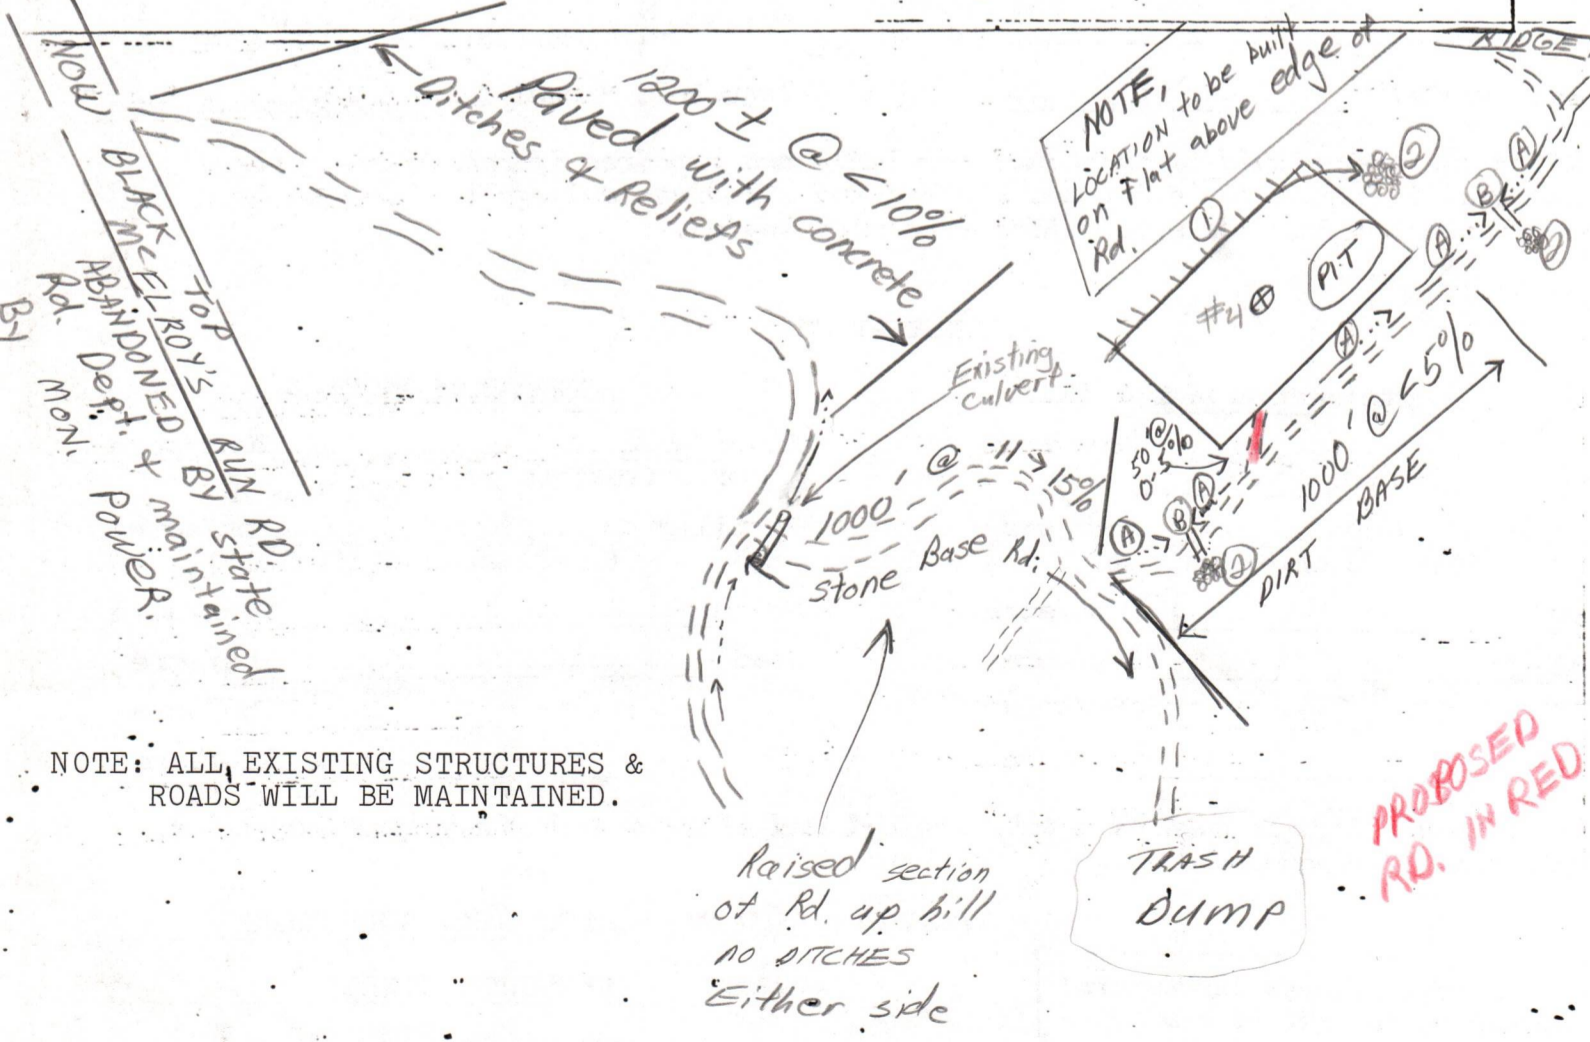 NOW BLACK TOP
McELROY'S RUN RD.
ABANDONED BY state
Rd. Dept. & maintained
By MON. POWER.
1200' ± @ < 10%
Paved with concrete
Ditches & Reliefs
NOTE,
LOCATION to be built
on Flat above edge of
Rd.
RIDGE
1
2
A
B
2
A
#4
PIT
A
Existing
culvert
50' @
0-5%
A
B
A
2
1000' @ < 5%
DIRT BASE
1000' @ 11 → 15%
Stone Base Rd.
NOTE: ALL EXISTING STRUCTURES &
ROADS WILL BE MAINTAINED.
Raised section
of Rd. up hill
no DITCHES
Either side
TRASH
DUMP
PROPOSED
RD. IN RED